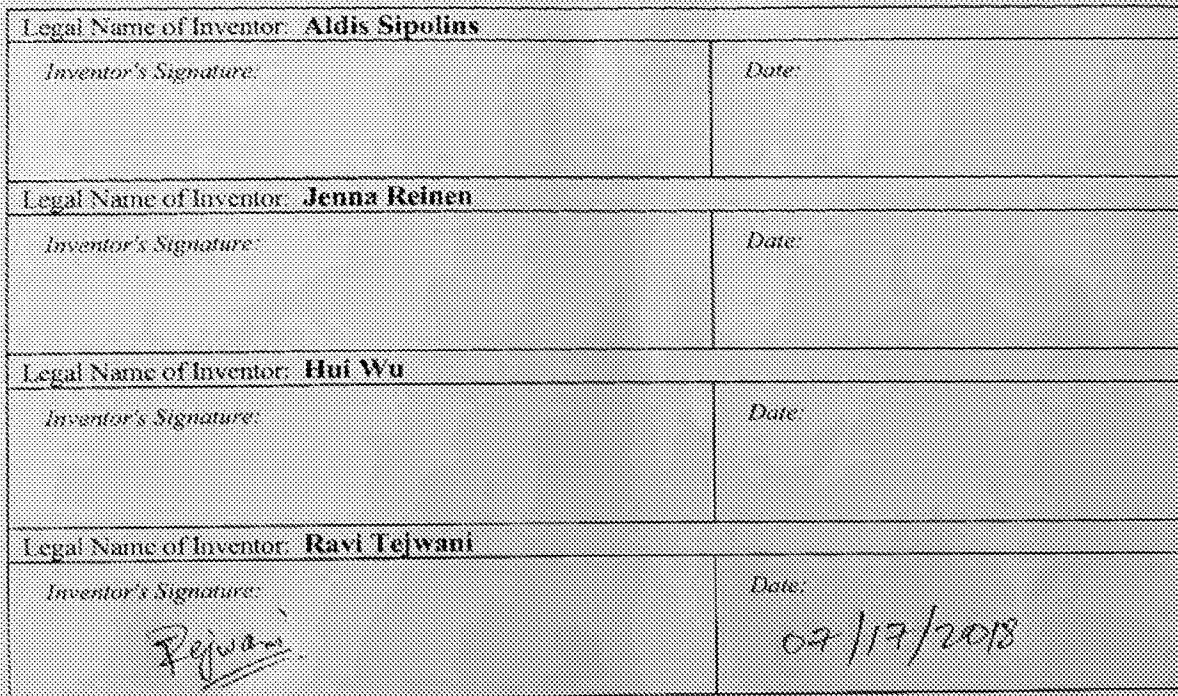 Legal Name of Inventor: Aldis Sipolins
Inventor's Signature: Date:
Legal Name of Inventor: Jenna Reinen
Inventor's Signature: Date:
Legal Name of Inventor: Hui Wu
Inventor's Signature: Date:
Legal Name of Inventor: Ravi Tejwani
Inventor's Signature: Date:
Rejwani 07/17/2018